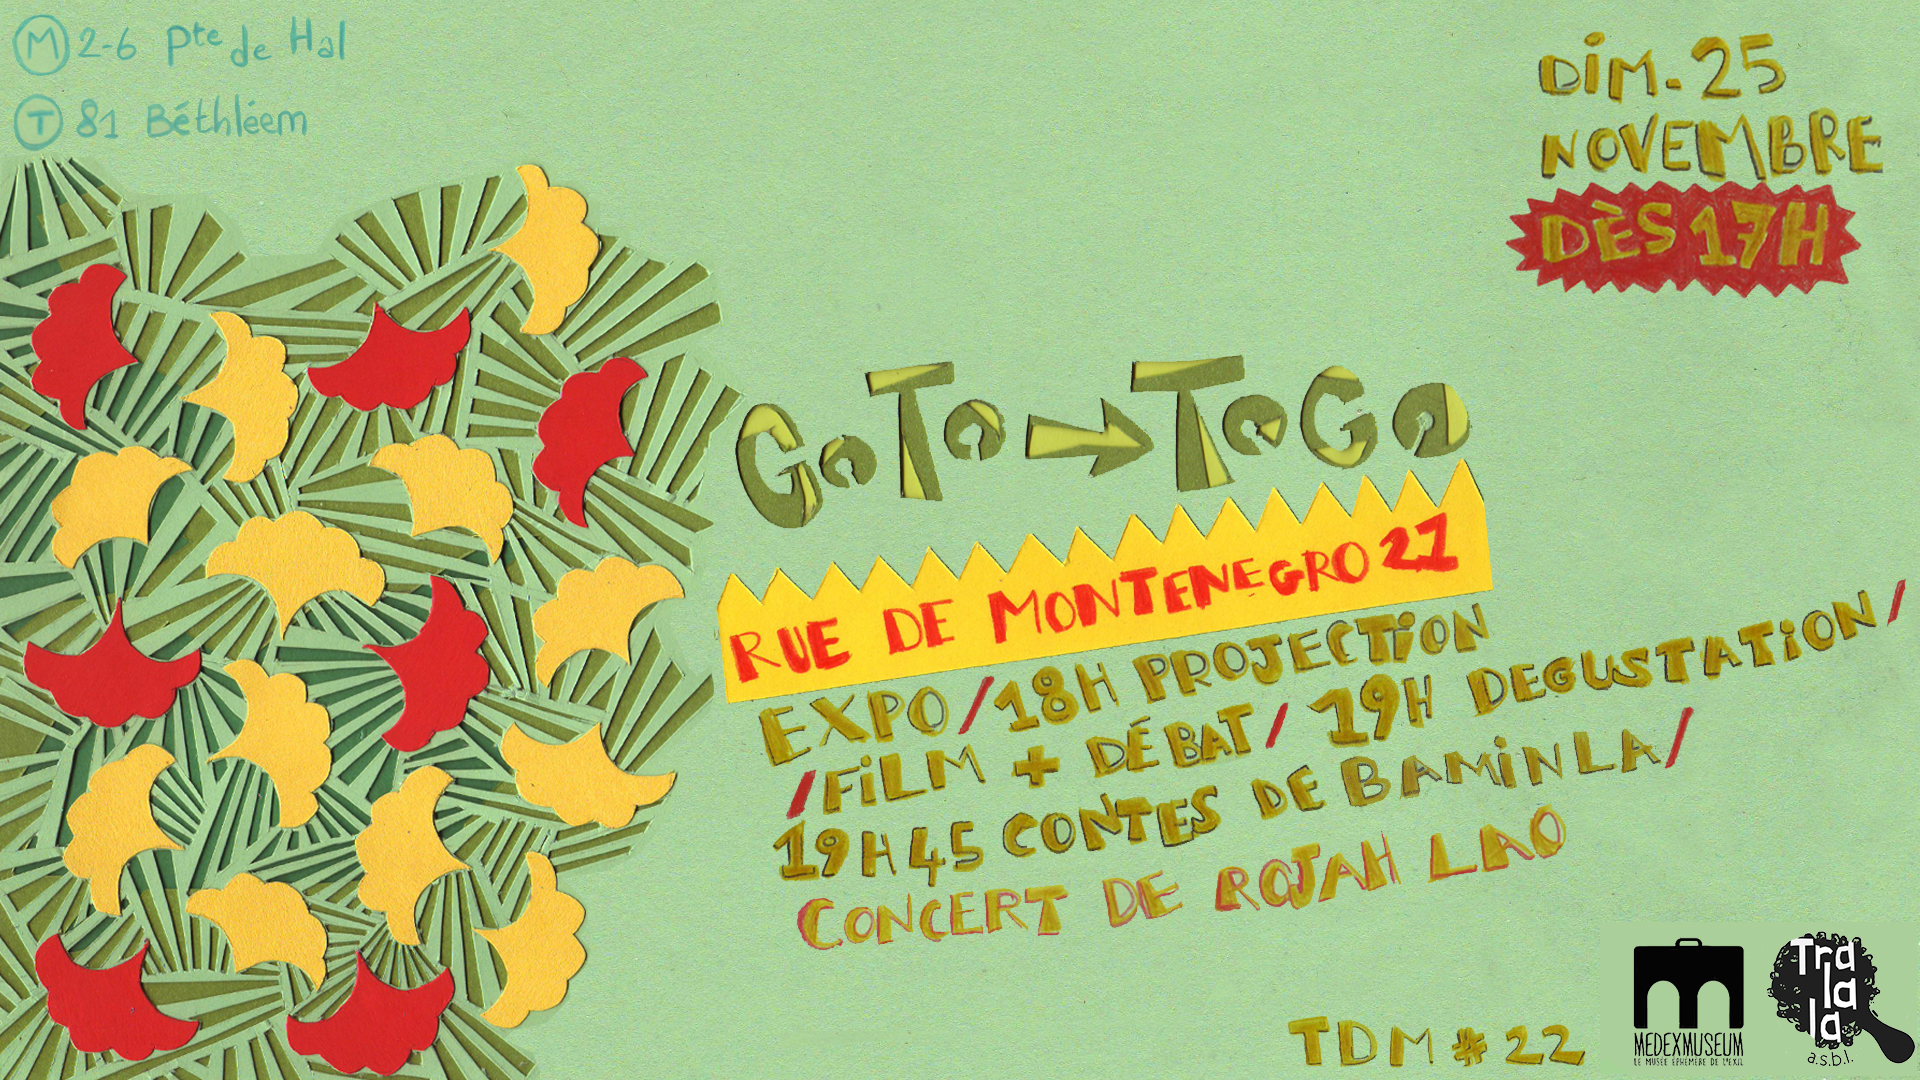 M 2-6 Pte de Hal
T 81 Béthléem
DiM. 25
NOVEMBRE
DÈS 17H
GoTo→ToGo
RUE DE MONTENEGRO 21
EXPO/18H PROJECTiON
/FiLM + DÉBAT/ 19H DEGUSTATiON/
19H45 CONTES DE BAMiNLA/
CONCERT DE ROJAH LAO
TDM #22
MEDEXMUSEUM
LE MUSÉE ÉPHÉMÈRE DE L'EXIL
Tra
la
la
a.s.b.l.